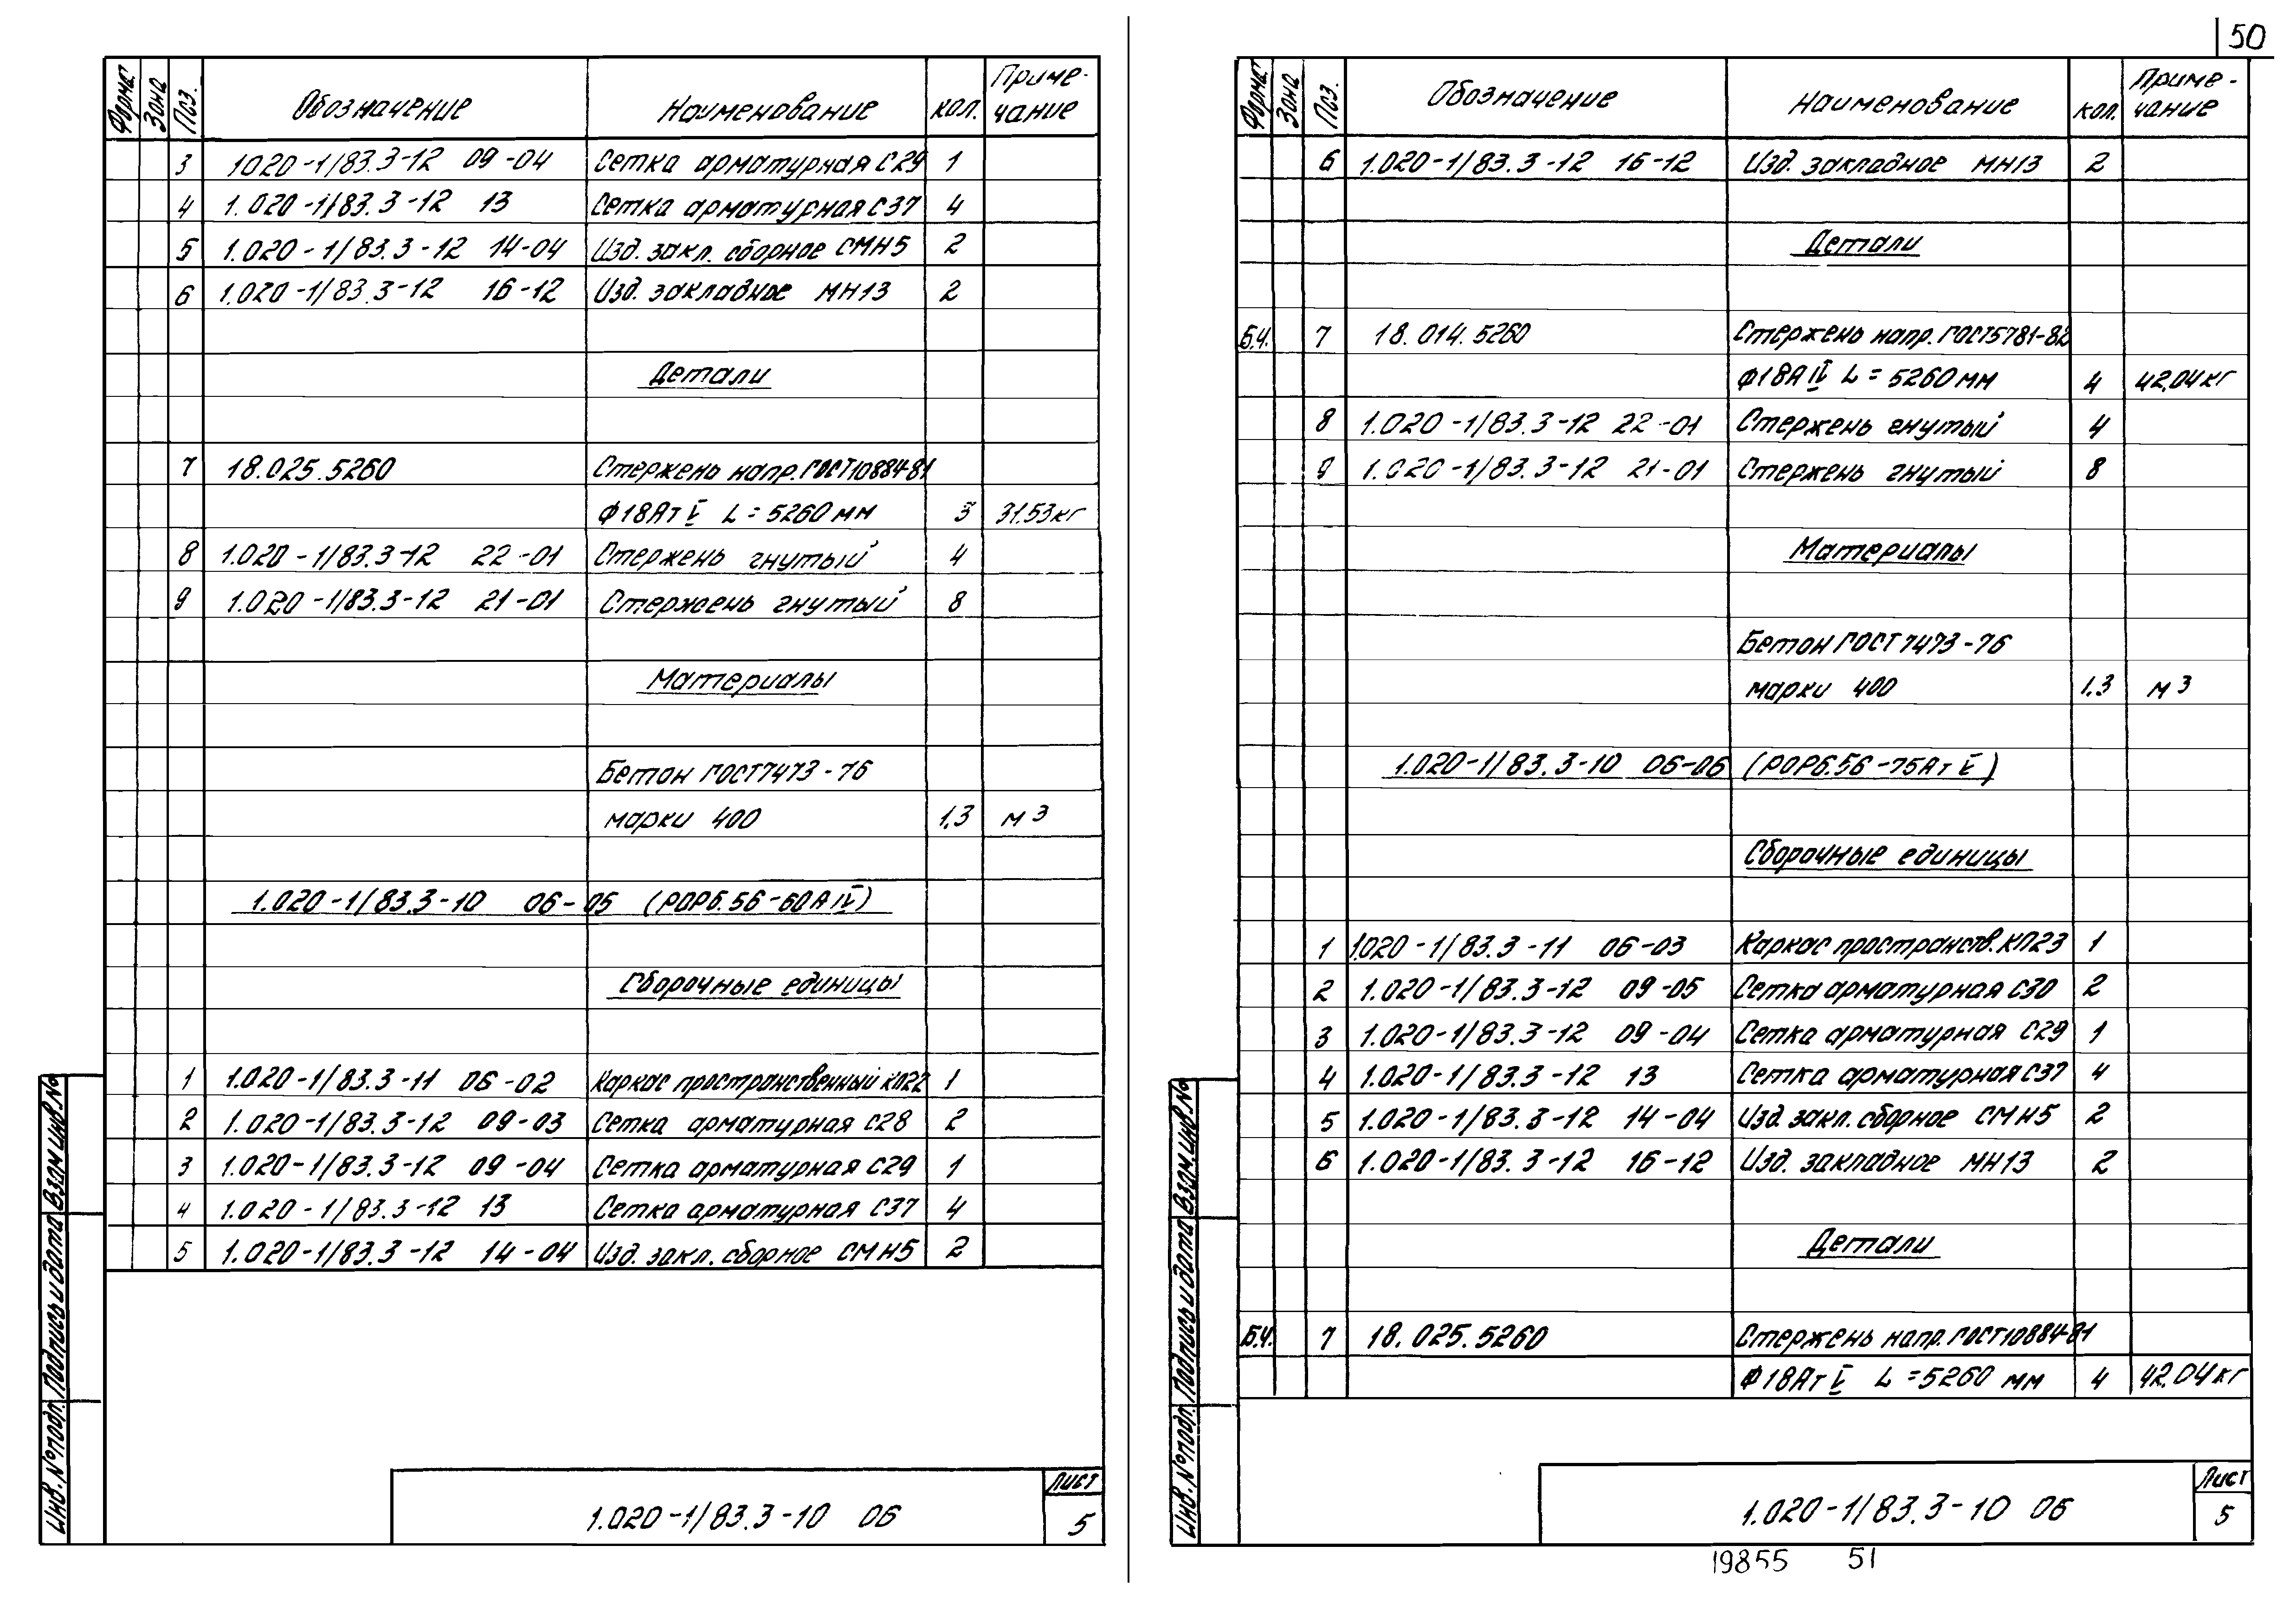 50
Формат Зона Поз. Обозначение Наименование кол. Приме-
чание
3 1020-1/83.3-12 09-04 Сетка арматурная С29 1
4 1.020-1/83.3-12 13 Сетка арматурная С37 4
5 1.020-1/83.3-12 14-04 Изд. закл. сборное СМН5 2
6 1.020-1/83.3-12 16-12 Изд. закладное МН13 2
Детали
7 18.025.5260 Стержень напр. ГОСТ10884-81
Ф18АтV L=5260мм 3 31.53кг
8 1.020-1/83.3-12 22-01 Стержень гнутый 4
9 1.020-1/83.3-12 21-01 Стержень гнутый 8
Материалы
Бетон ГОСТ7473-76
марки 400 1,3 м3
1.020-1/83.3-10 06-05 (РОР6.56-60АIV)
Сборочные единицы
1 1.020-1/83.3-11 06-02 Каркас пространственный КП22 1
2 1.020-1/83.3-12 09-03 Сетка арматурная С28 2
3 1.020-1/83.3-12 09-04 Сетка арматурная С29 1
4 1.020-1/83.3-12 13 Сетка арматурная С37 4
5 1.020-1/83.3-12 14-04 Изд. закл. сборное СМН5 2
Инв. № подл. Подпись и дата Взам.инв.№
Лист
1.020-1/83.3-10 06 5
Формат Зона Поз. Обозначение Наименование кол. Приме-
чание
6 1.020-1/83.3-12 16-12 Изд. закладное МН13 2
Детали
Б.Ч. 7 18.014.5260 Стержень напр. ГОСТ5781-82
Ф18АIV L=5260мм 4 42,04кг
8 1.020-1/83.3-12 22-01 Стержень гнутый 4
9 1.020-1/83.3-12 21-01 Стержень гнутый 8
Материалы
Бетон ГОСТ7473-76
марки 400 1,3 м3
1.020-1/83.3-10 06-06 (РОР6.56-75АтV)
Сборочные единицы
1 1.020-1/83.3-11 06-03 Каркас пространств. КП23 1
2 1.020-1/83.3-12 09-05 Сетка арматурная С30 2
3 1.020-1/83.3-12 09-04 Сетка арматурная С29 1
4 1.020-1/83.3-12 13 Сетка арматурная С37 4
5 1.020-1/83.3-12 14-04 Изд. закл. сборное СМН5 2
6 1.020-1/83.3-12 16-12 Изд. закладное МН13 2
Детали
Б.Ч. 7 18.025.5260 Стержень напр. ГОСТ10884-81
Ф18АтV L=5260 мм 4 42,04кг
Инв. № подл. Подпись и дата Взам.инв.№
Лист
1.020-1/83.3-10 06 5
19855 51